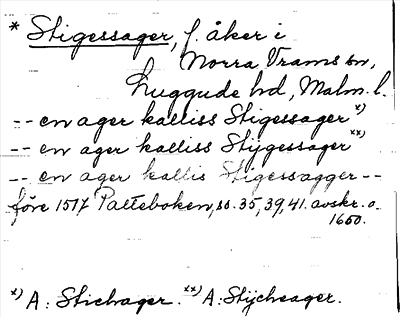 * Stigessager, f. åker i
Norra Vrams sn,
Luggude hd, Malm. l.
-- en ager kalliss Stigessager x)
-- en ager kalliss Stÿgessager xx)
-- en ager kallis Stigessagger --
före 1517 Palteboken, s. 35, 39, 41. avskr. o.
1600.
x) A: Stichager. xx) A: Stÿchsager.